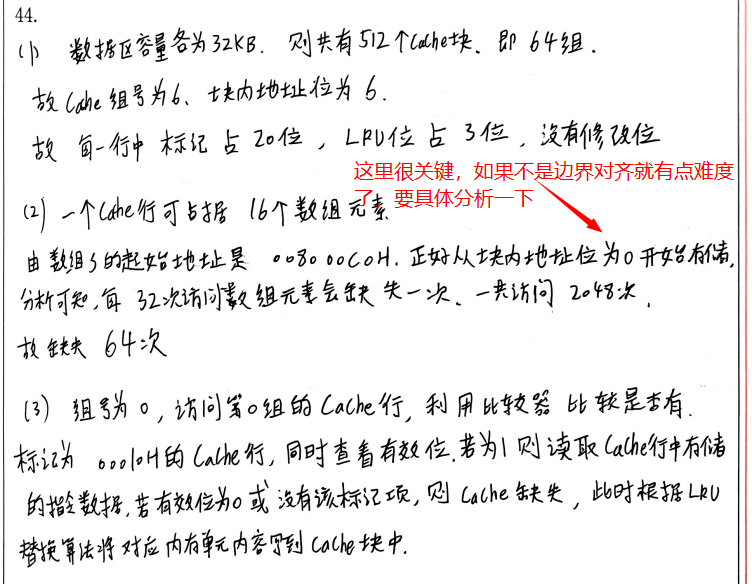 44.
(1) 数据区容量各为32KB. 则共有512个Cache块、即64组.
故 Cahe 组号为6、块内地址位为6.
故 每一行中 标记 占20位, LRU位 占 3位, 没有修改位
这里很关键,如果不是边界对齐就有点难度
了,要具体分析一下
(2) 一个Cahe行可占据 16个数组元素
由数组s的起始地址是 008000C0H. 正好从块内地址位为0开始存储,
分析可知,每 32次访问数组元素会缺失一次、一共访问 2048次.
故 缺失 64次
(3) 组号为0, 访问第0组的Cache行, 利用比较器 比较是否有
标记为 00010H的Cache行, 同时查看有效位.若为1则读取Cache行中存储
的指令数据.若有效位为0或没有该标记项, 则 Cache 缺失, 此时根据LRU
替换算法将对应内存单元内容写到Cache块中.